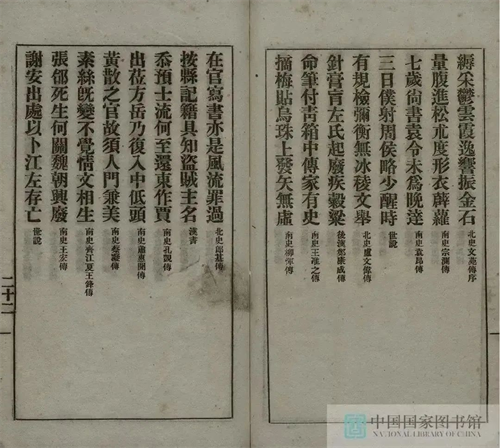 縟采鬱雲霞逸響振金石 北史文苑傳序
量腹進松朮度形衣薜蘿 南史宗測傳
七歲尚書袁令未爲晚達 南史袁昂傳
三日僕射周侯略少醒時 世說
有規檢彌衡無冰稜文舉 北史盧文偉傳
針膏肓左氏起廢疾穀梁 後漢鄭康成傳
命筆付青箱中傳家有史 南史王准之傳
摘梅貼烏珠上發矢無虛 南史柳惲傳
在官寫書亦是風流罪過 北史郎基傳
按縣記籍具知盜賊主名 漢書
忝預士流何至還東作賈 南史孔覬傳
出莅方岳乃復入中低頭 南史蕭惠開傳
黃散之官故須人門兼美 南史蔡廓傳
素絲旣變不覺情文相生 南史齊江夏王鋒傳
張邵死生何關魏朝興廢 南史王宏傳
謝安出處以卜江左存亡 世說
二十二
中国国家图书馆
NATIONAL LIBRARY OF CHINA